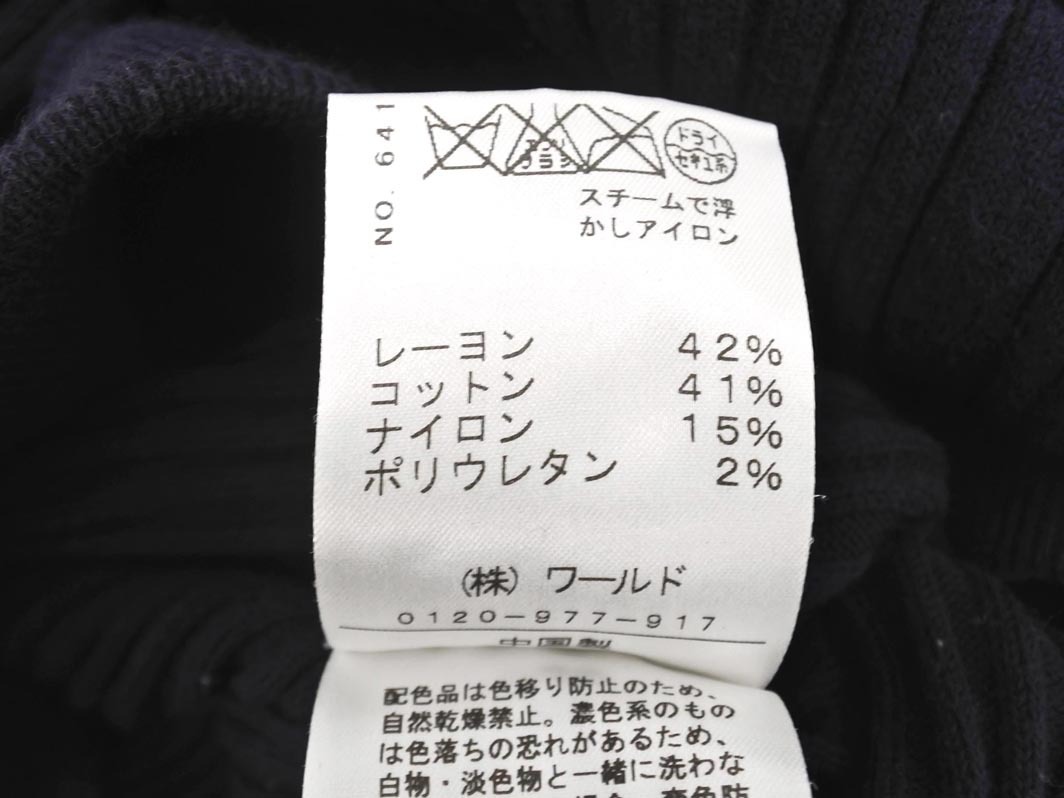 NO. 641
エンソ
ブラシ
ドライ
セキユ系
スチームで浮
かしアイロン
レーヨン 42%
コットン 41%
ナイロン 15%
ポリウレタン 2%
(株) ワールド
0120-977-917
中国製
配色品は色移り防止のため、
自然乾燥禁止。濃色系のもの
は色落ちの恐れがあるため、
白物・淡色物と一緒に洗わな